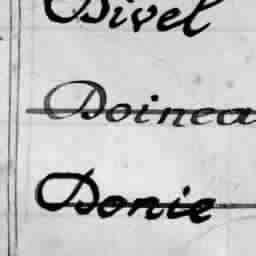 Divel
Doinea
Donie